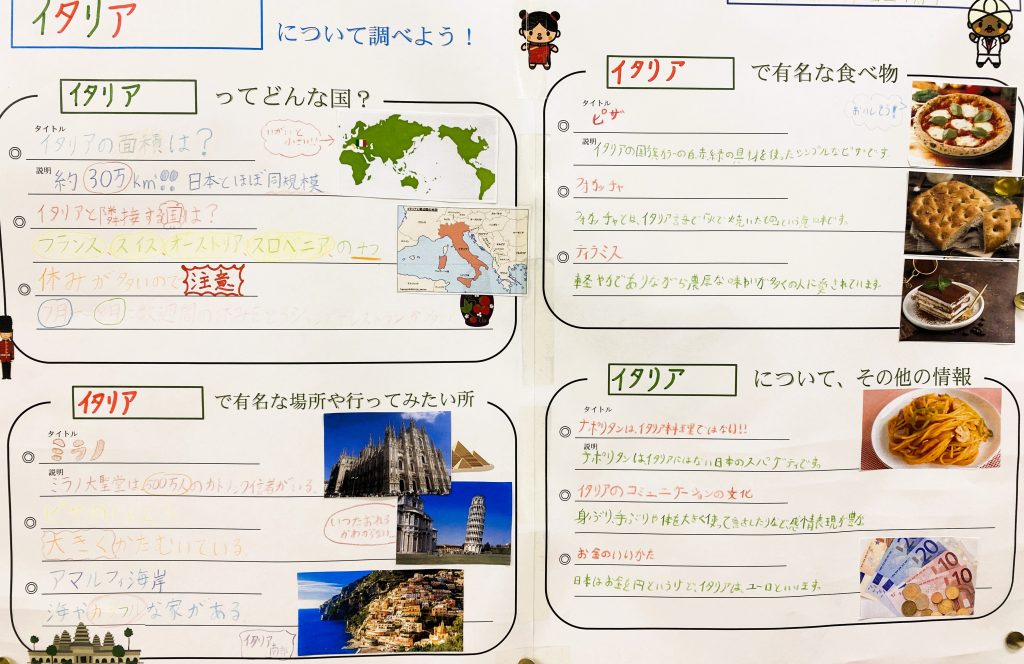 イタリア について調べよう！
イタリア ってどんな国？
タイトル
イタリアの面積は？
いがいと小さい!!
説明
約30万km²!! 日本とほぼ同規模
イタリアと隣接する国は？
フランス、スイス、オーストリア、スロベニアの4つ
休みが多いので注意
7月〜8月に数週間の休みをとる
イタリア で有名な場所や行ってみたい所
タイトル
ミラノ
説明
ミラノ大聖堂は500万人のカトリック信者がいる。
大きくかたむいている。
いつたおれるかわからない
アマルフィ海岸
海がカラフルな家がある
イタリア南部
イタリア で有名な食べ物
タイトル
ピザ
おいしそう!!
説明
イタリアの国旗カラーの白赤緑の具材を使ったシンプルなピザです。
フォカッチャ
フォカッチャとは、イタリア言語で「火で焼いたもの」という意味です。
ティラミス
軽やかでありながら濃厚な味わいが多くの人に愛されています。
イタリア について、その他の情報
タイトル
ナポリタンは、イタリア料理ではない!!
説明
ナポリタンはイタリアにはない日本のスパゲティです。
イタリアのコミュニケーションの文化
身ぶり、手ぶりや体を大きく使って
お金のいいかた
日本はお金を円というけど、イタリアは、ユーロといいます。
20
10
10